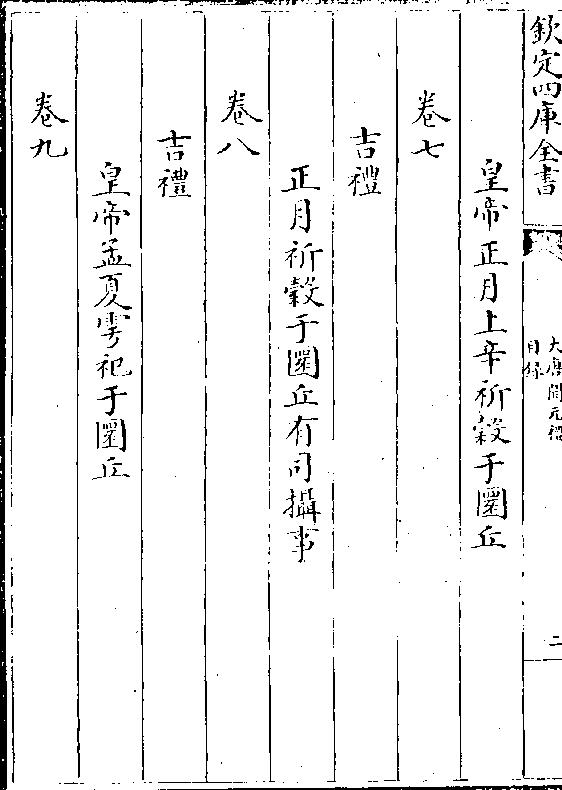 欽定四庫全書
大唐開元禮
目録
二
皇帝正月上辛祈穀于圜丘
卷七
吉禮
正月祈穀于圜丘有司攝事
卷八
吉禮
皇帝孟夏雩祀于圜丘
卷九